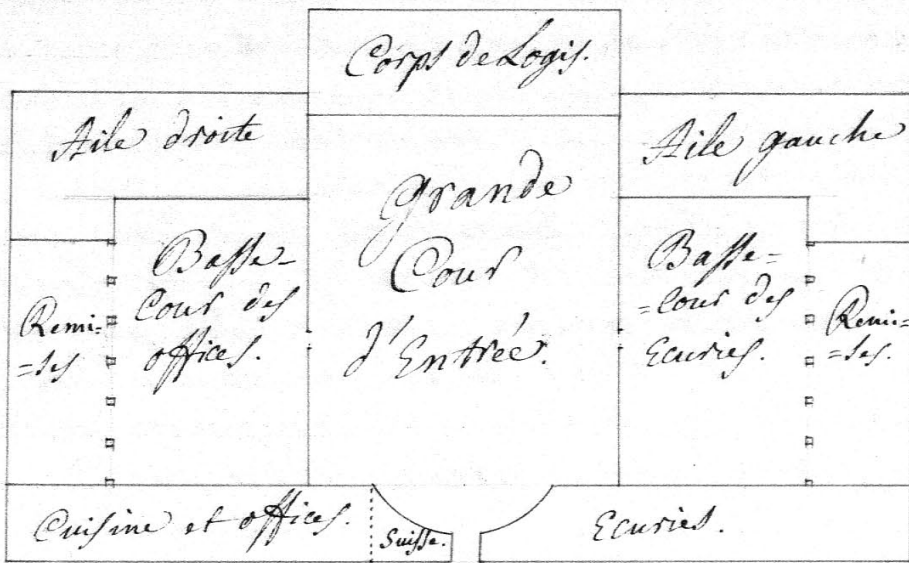 Corps de Logis.
Aile droite
Aile gauche
grande
Cour
d'Entrée.
Basse-
Cour des
offices.
Basse-
=cour des
Ecuries.
Remi-
=ses
Remi-
=ses.
Cuisine et offices.
Suisse.
Ecuries.